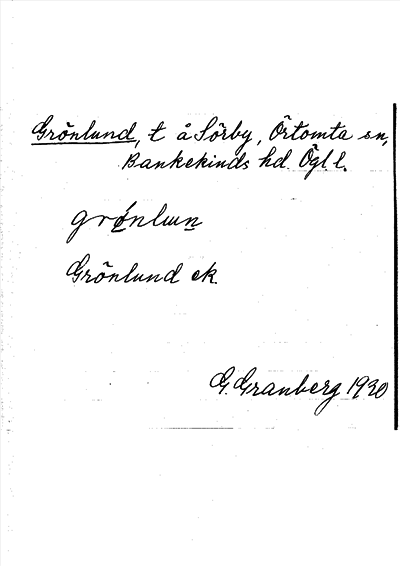 Grönlund, t å Sörby, Örtomta sn,
Bankekinds hd. Ögl l.
grǿnlɯn
Grönlund ek.
G. Granberg 1930